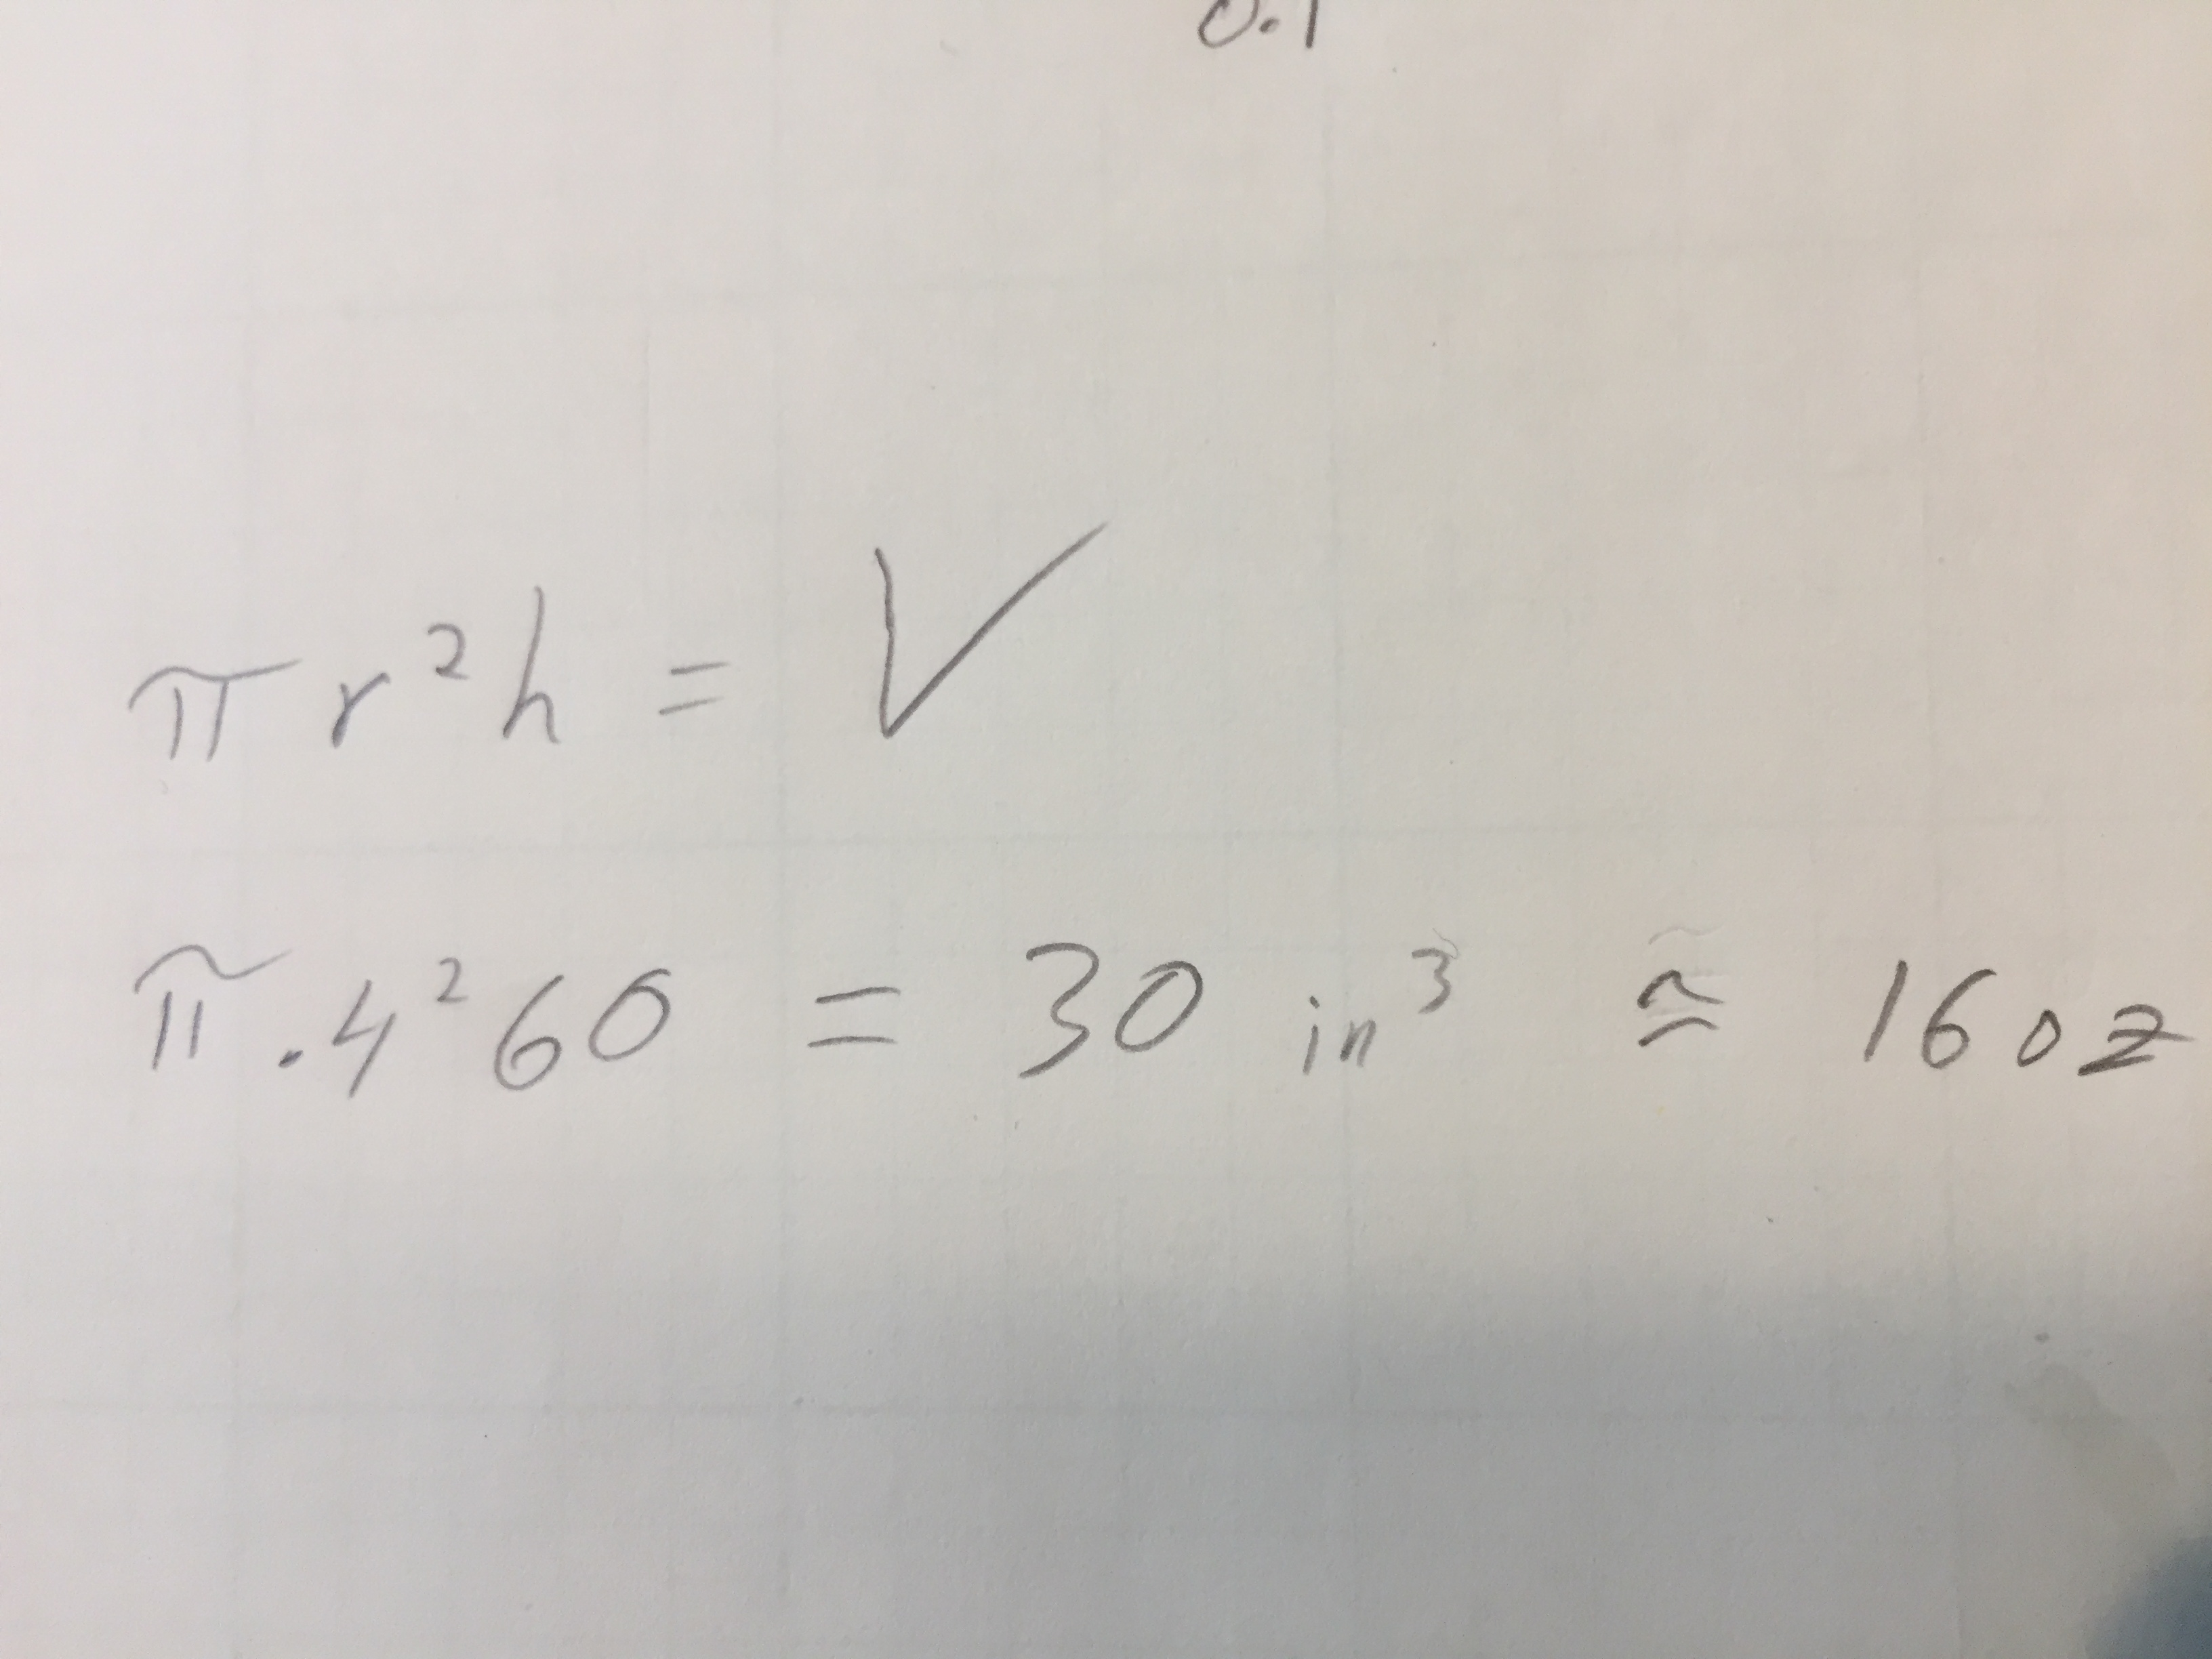 0.1
π r²h = V
π .4²60 = 30 in³ ≅ 16 oz